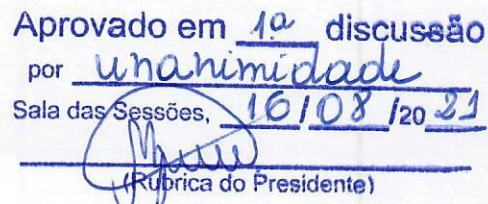 Aprovado em 1ª discussão
por unanimidade
Sala das Sessões, 16/08/2021
(Rubrica do Presidente)